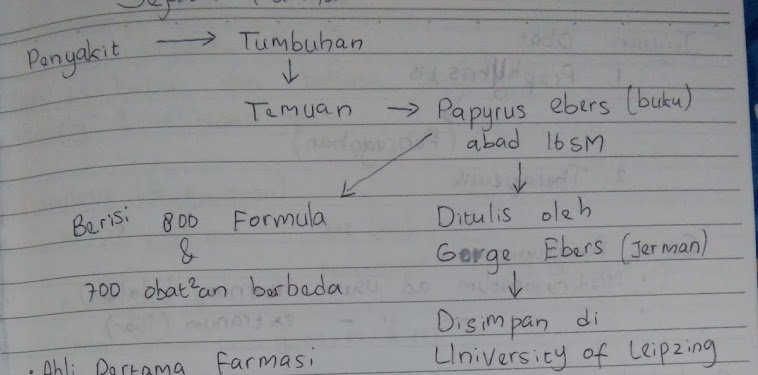 Penyakit → Tumbuhan
↓
Temuan → Papyrus ebers (buku)
abad 16 SM
↓
Berisi 800 Formula
&
700 obat²an berbeda
Ditulis oleh
Gorge Ebers (Jerman)
↓
Disimpan di
University of Leipzing
• Ahli Pertama Farmasi